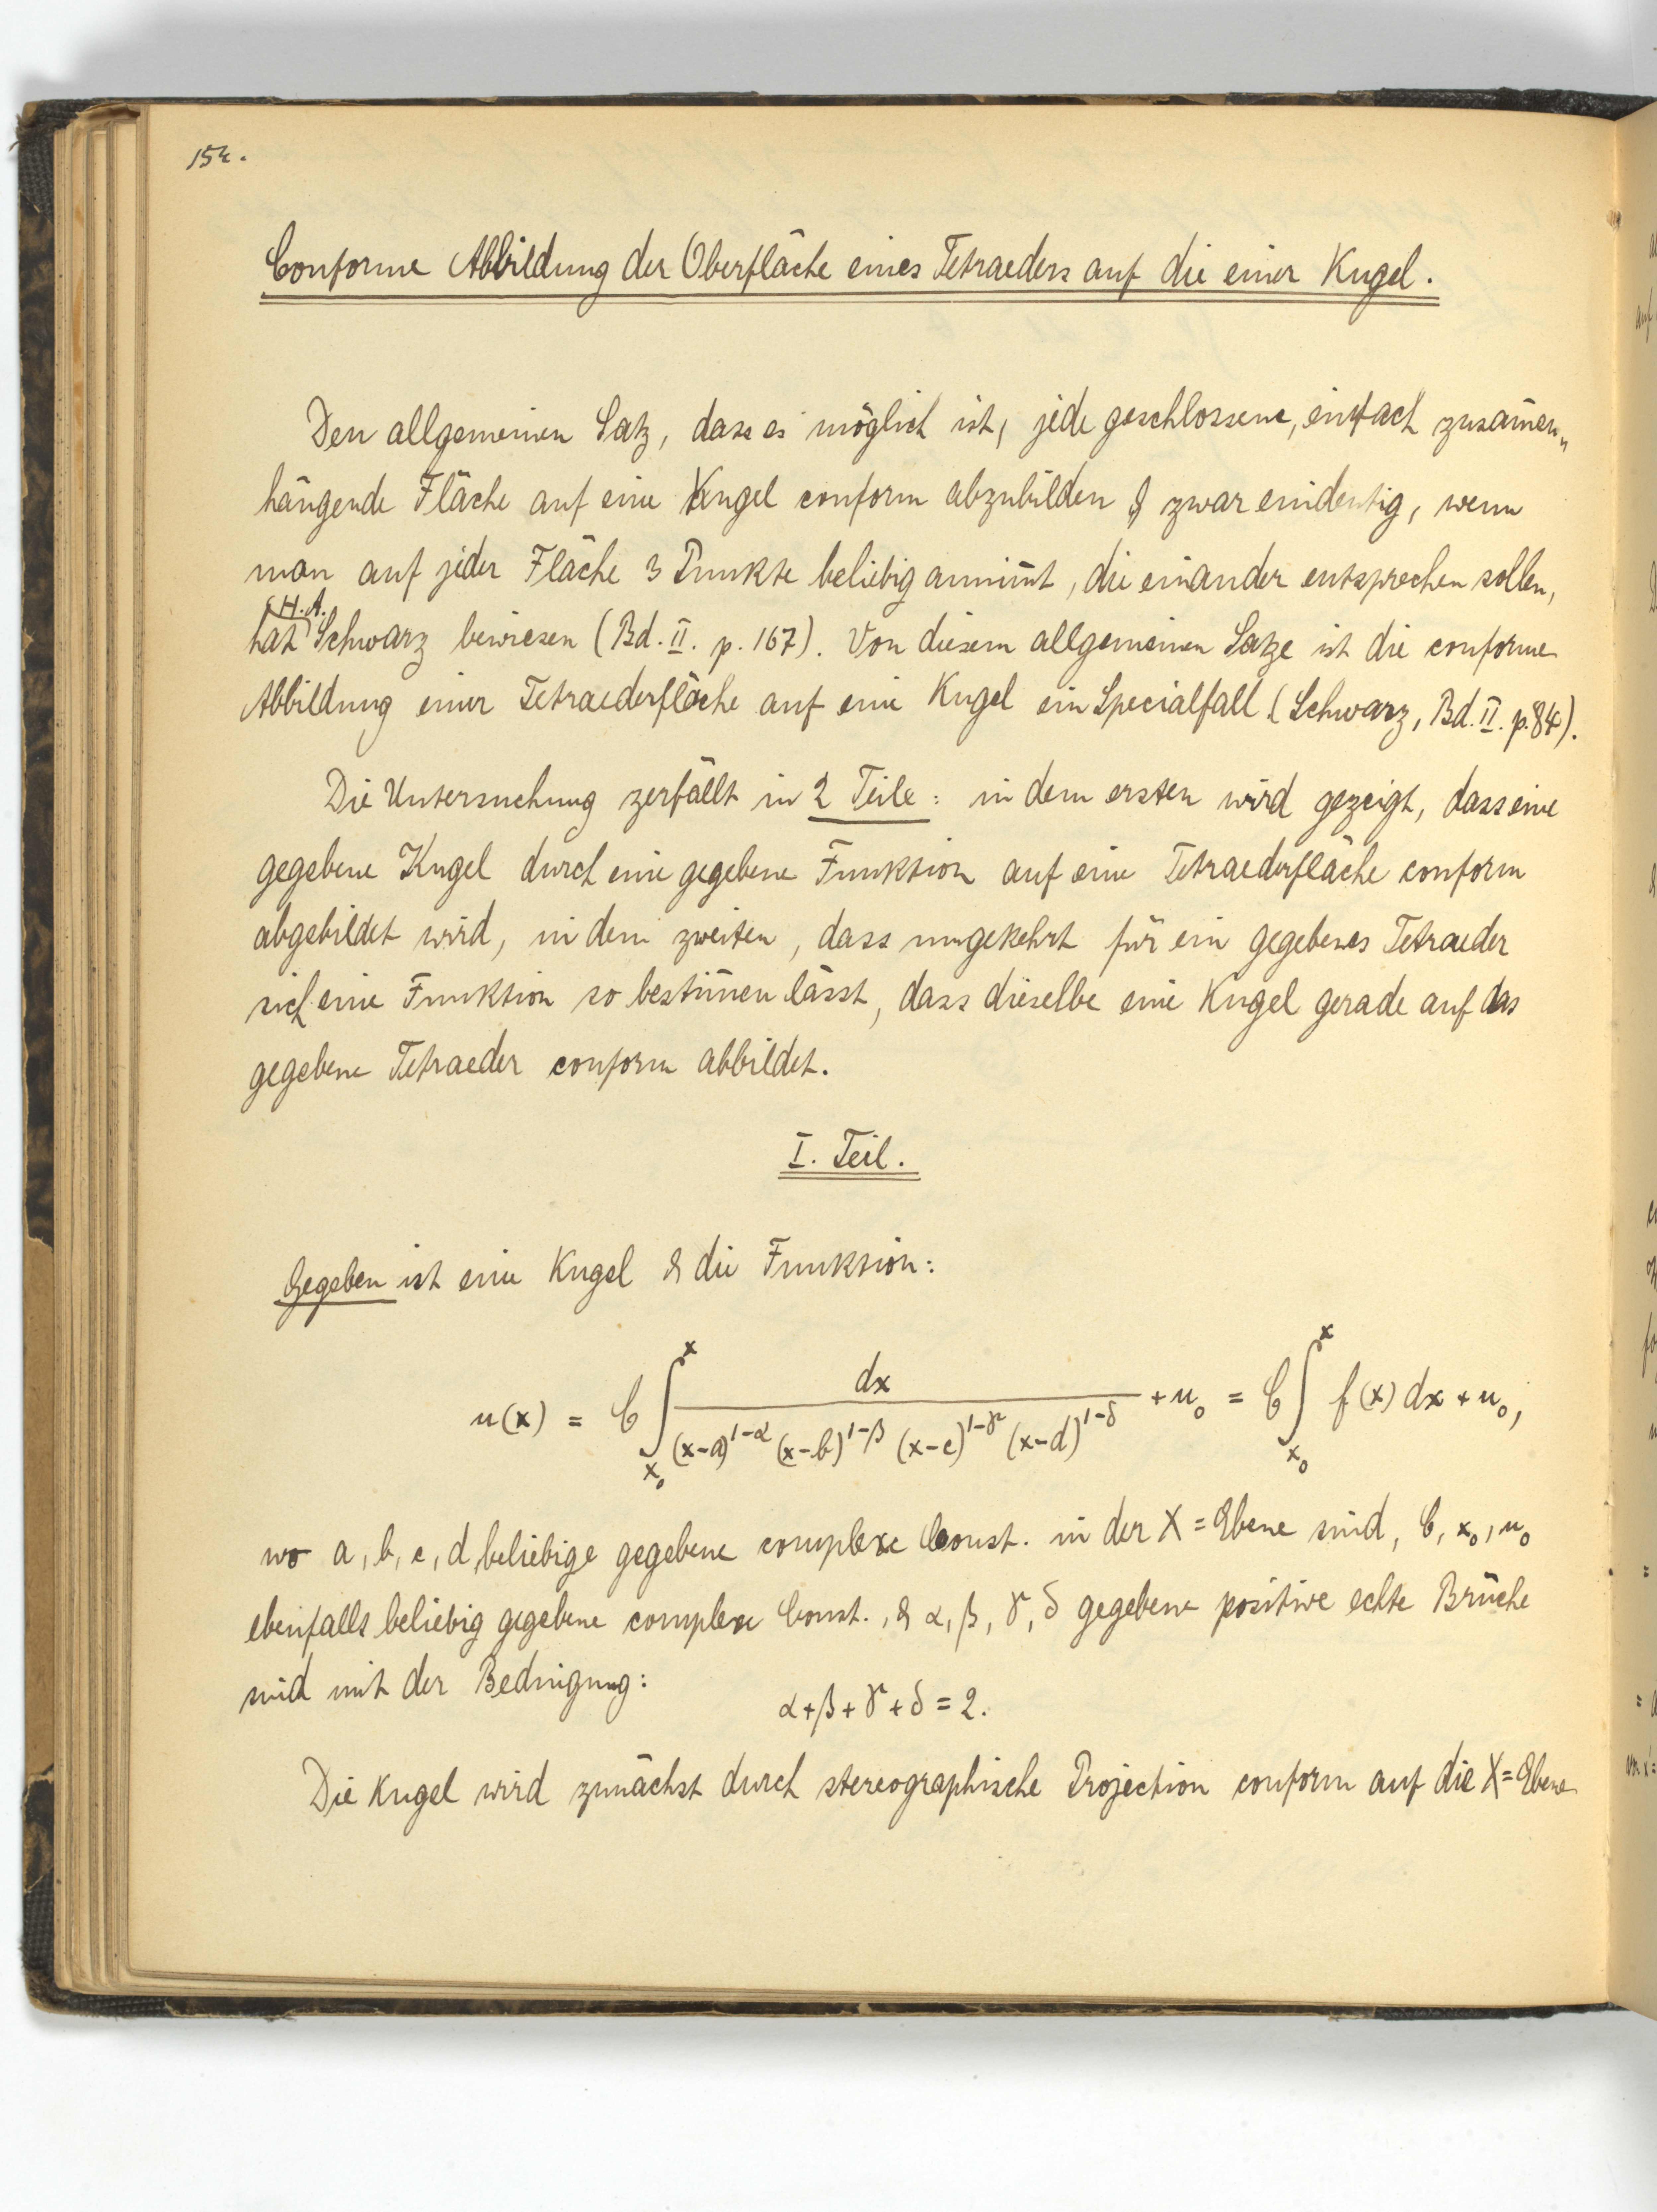 154.
Conforme Abbildung der Oberfläche eines Tetraeders auf die einer Kugel.
Den allgemeinen Satz, dass es möglich ist, jede geschlossene, einfach zusam̅en„
hängende Fläche auf eine Kugel conform abzubilden & zwar eindeutig, wenn
man auf jeder Fläche 3 Punkte beliebig annim̅t, die einander entsprechen sollen,
H. A.
hat Schwarz bewiesen (Bd. II. p. 167). Von diesem allgemeinen Satze ist die conforme
Abbildung einer Tetraederfläche auf eine Kugel ein Specialfall (Schwarz, Bd. II. p. 84).
Die Untersuchung zerfällt in 2 Teile: in dem ersten wird gezeigt, dass eine
gegebene Kugel durch eine gegebene Funktion auf eine Tetraederfläche conform
abgebildet wird, in dem zweiten, dass umgekehrt für ein gegebenes Tetraeder
sich eine Funktion so bestim̅en lässt, dass dieselbe eine Kugel gerade auf das
gegebene Tetraeder conform abbildet.
I. Teil.
Gegeben ist eine Kugel & die Funktion:
u(x) = C ∫_{x₀}^{x} dx / ((x-a)^{1-α} (x-b)^{1-β} (x-c)^{1-γ} (x-d)^{1-δ}) + u₀ = C ∫_{x₀}^{x} f(x) dx + u₀,
wo a, b, c, d, beliebige gegebene complexe Const. in der X=Ebene sind, C, x₀, u₀
ebenfalls beliebig gegebene complexe Const., & α, β, γ, δ gegebene positive echte Brüche
sind mit der Bedingung:
α+β+γ+δ = 2.
Die Kugel wird zunächst durch stereographische Projection conform auf die X=Ebene